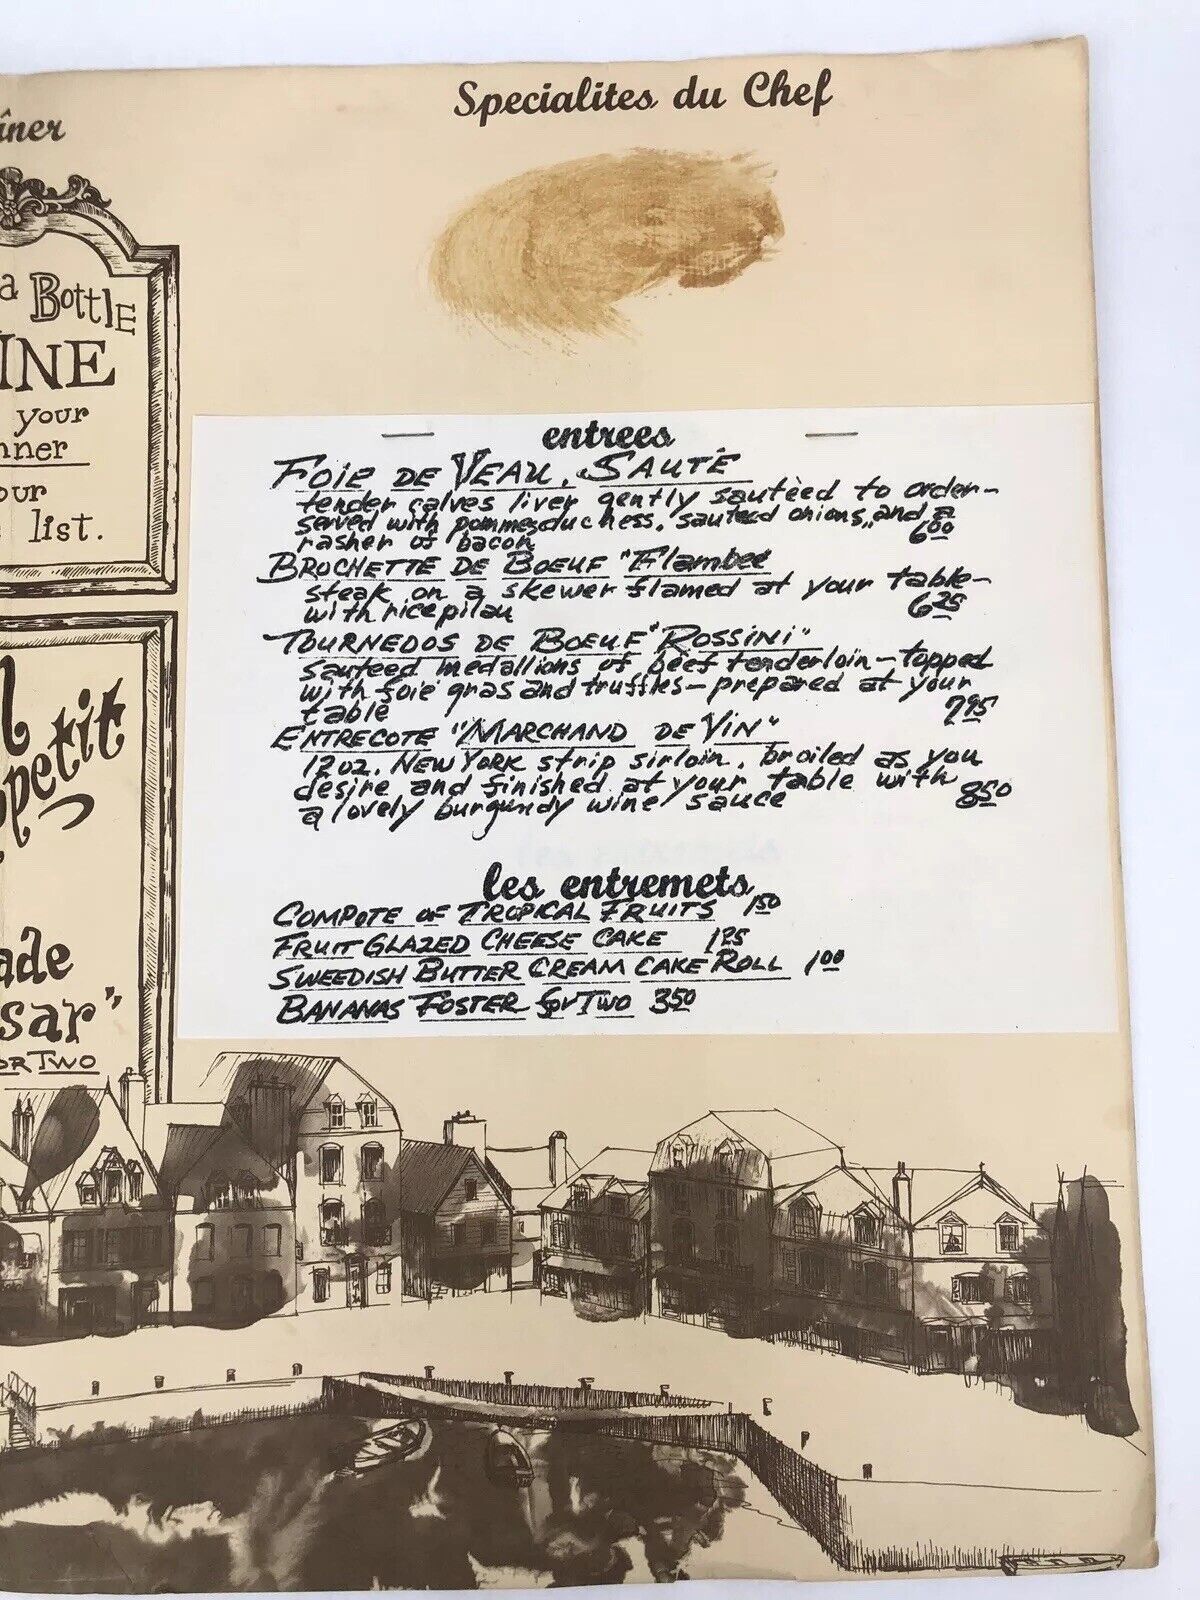 Specialites du Chef
îner
a BOTTLE
INE
your
nner
our
list.
petit
ade
sar"
OR TWO
entrees
FOIE DE VEAU, SAUTÉ
tender calves liver gently sautèed to order-
served with pommes duchess, sauteed onions, and a
rasher of bacon 600
BROCHETTE DE BOEUF "Flambee
steak on a skewer flamed at your table-
with rice pilau 625
TOURNEDOS DE BOEUF "ROSSINI"
sauteed medallions of beef tenderloin-topped
with foie gras and truffles-prepared at your
table 795
ENTRECOTE "MARCHAND DE VIN"
12 oz. NEW YORK strip sirloin, broiled as you
desire and finished at your table with
a lovely burgundy wine sauce 850
les entremets
COMPOTE OF TROPICAL FRUITS 150
FRUIT GLAZED CHEESE CAKE
SWEEDISH BUTTER CREAM CAKE ROLL 100
BANANAS FOSTER for TWO 350